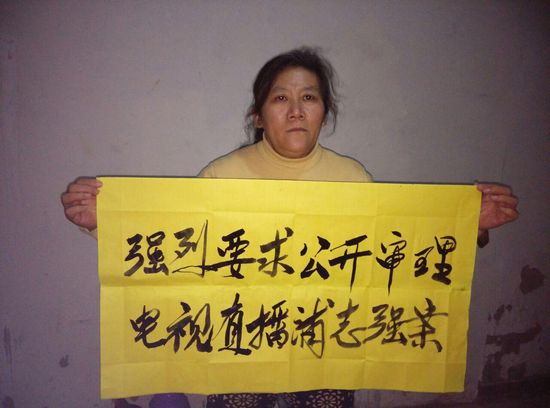 强烈要求公开审理
电视直播浦志强案